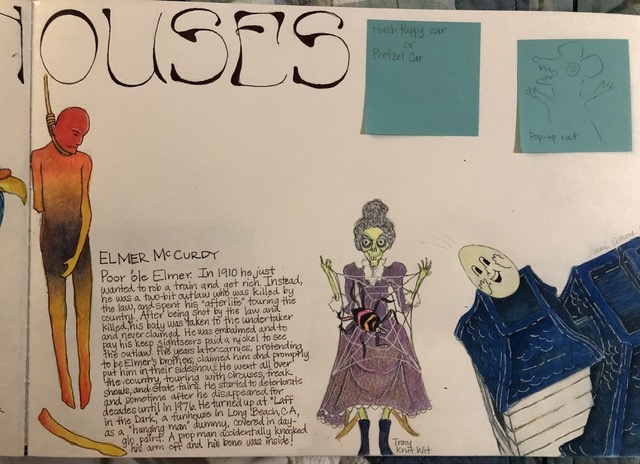 HOUSES
Hush Puppy car
or
Pretzel Car
Pop-up rat
ELMER McCURDY
Poor 'ole Elmer. In 1910 he just
wanted to rob a train and get rich. Instead,
he was a two-bit outlaw who was killed by
the law, and spent his "afterlife" touring the
country. After being shot by the law and
killed, his body was taken to the undertaker
and never claimed. He was embalmed and to
pay his keep sightseers paid a nickel to see
the outlaw. Five years later carnies, pretending
to be Elmer's brothers, claimed him and promptly
put him in their sideshow! He went all over
the country, touring with circuses, freak
shows, and state fairs. He started to deteriorate
and sometime after he disappeared for
decades until in 1976. He turned up at "Laff
in the Dark," a funhouse in Long Beach, CA,
as a "hanging man" dummy, covered in day-
glo paint. A prop man accidentally knocked
his arm off and his bone was inside!
Tracy
Knit Wit